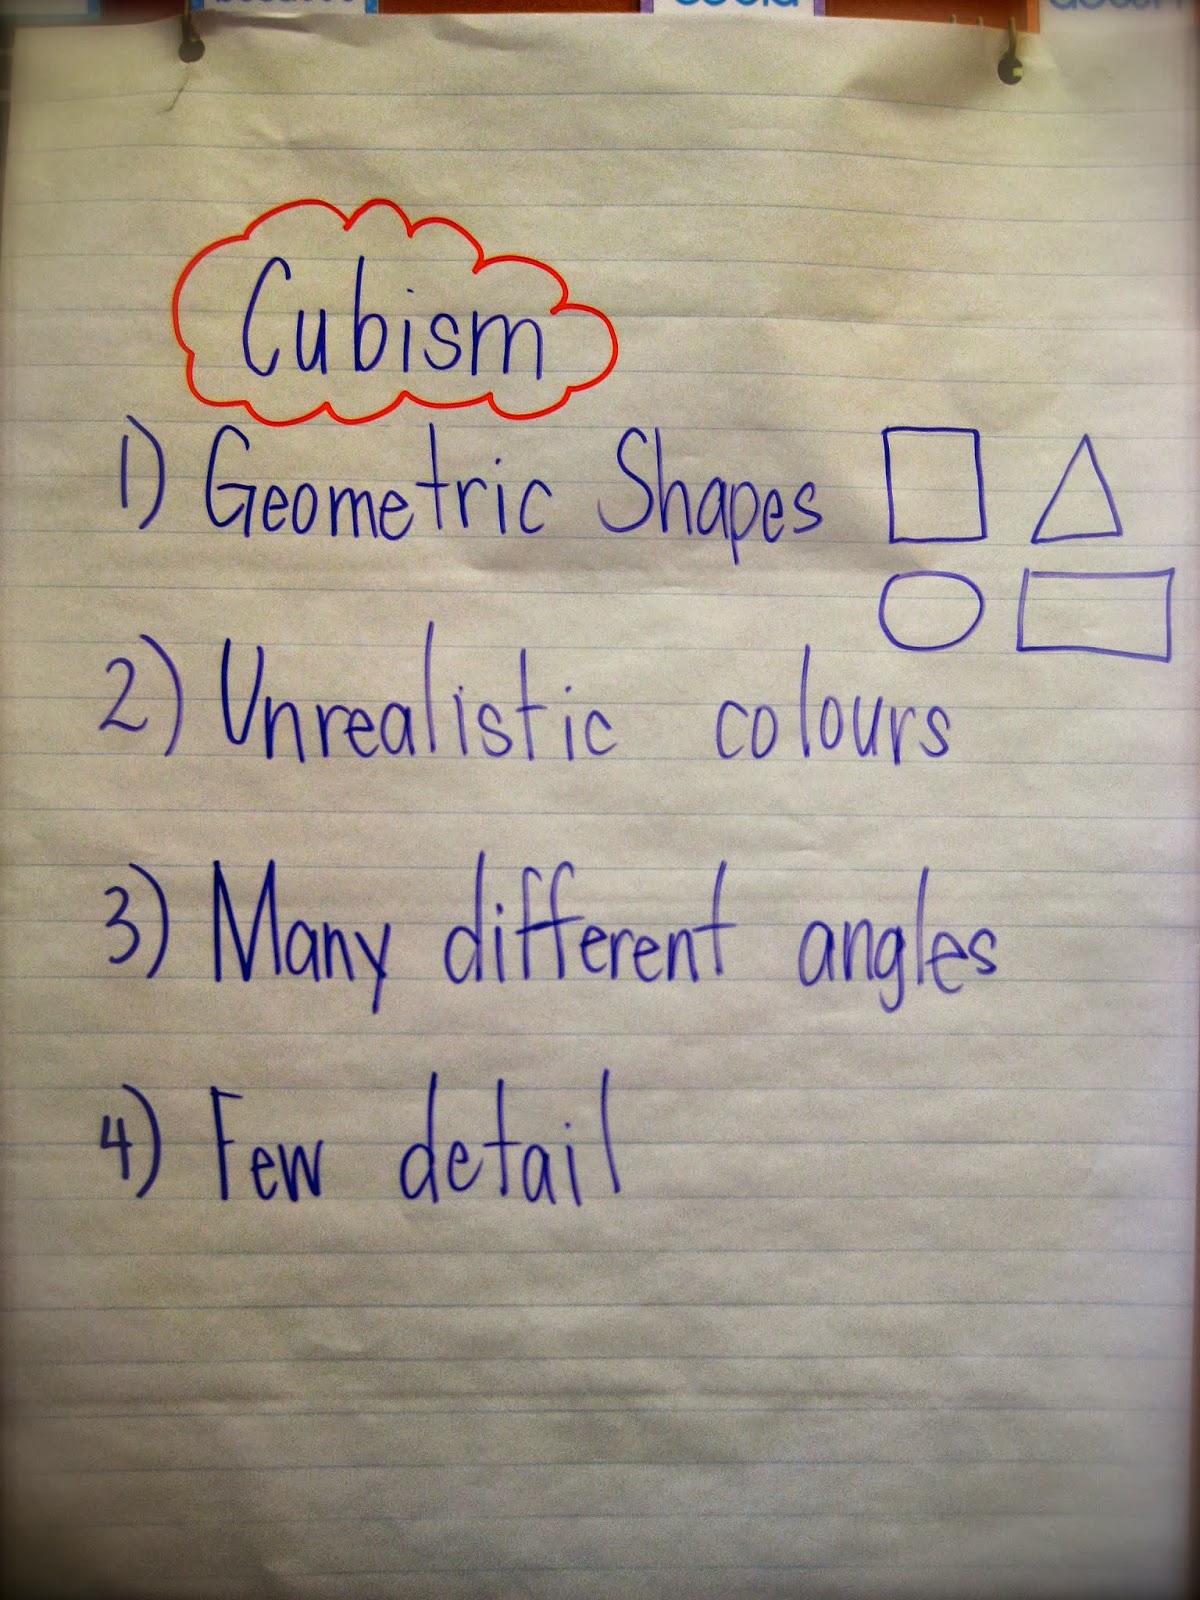 Cubism
1) Geometric Shapes
2) Unrealistic colours
3) Many different angles
4) Few detail